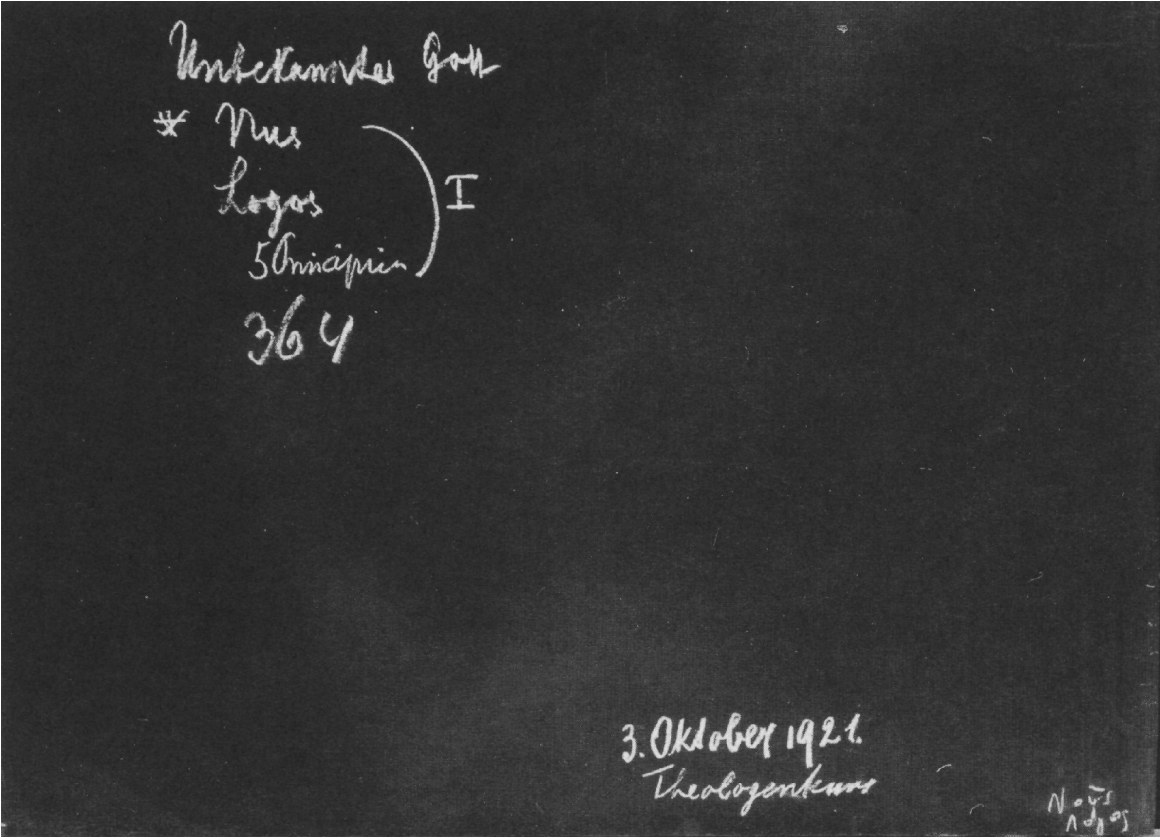 Unbekannter Gott
* Nus
Logos
I
5 Principien
364
3. Oktober 1921.
Theologenkurs
Νοῦς
Λόγος